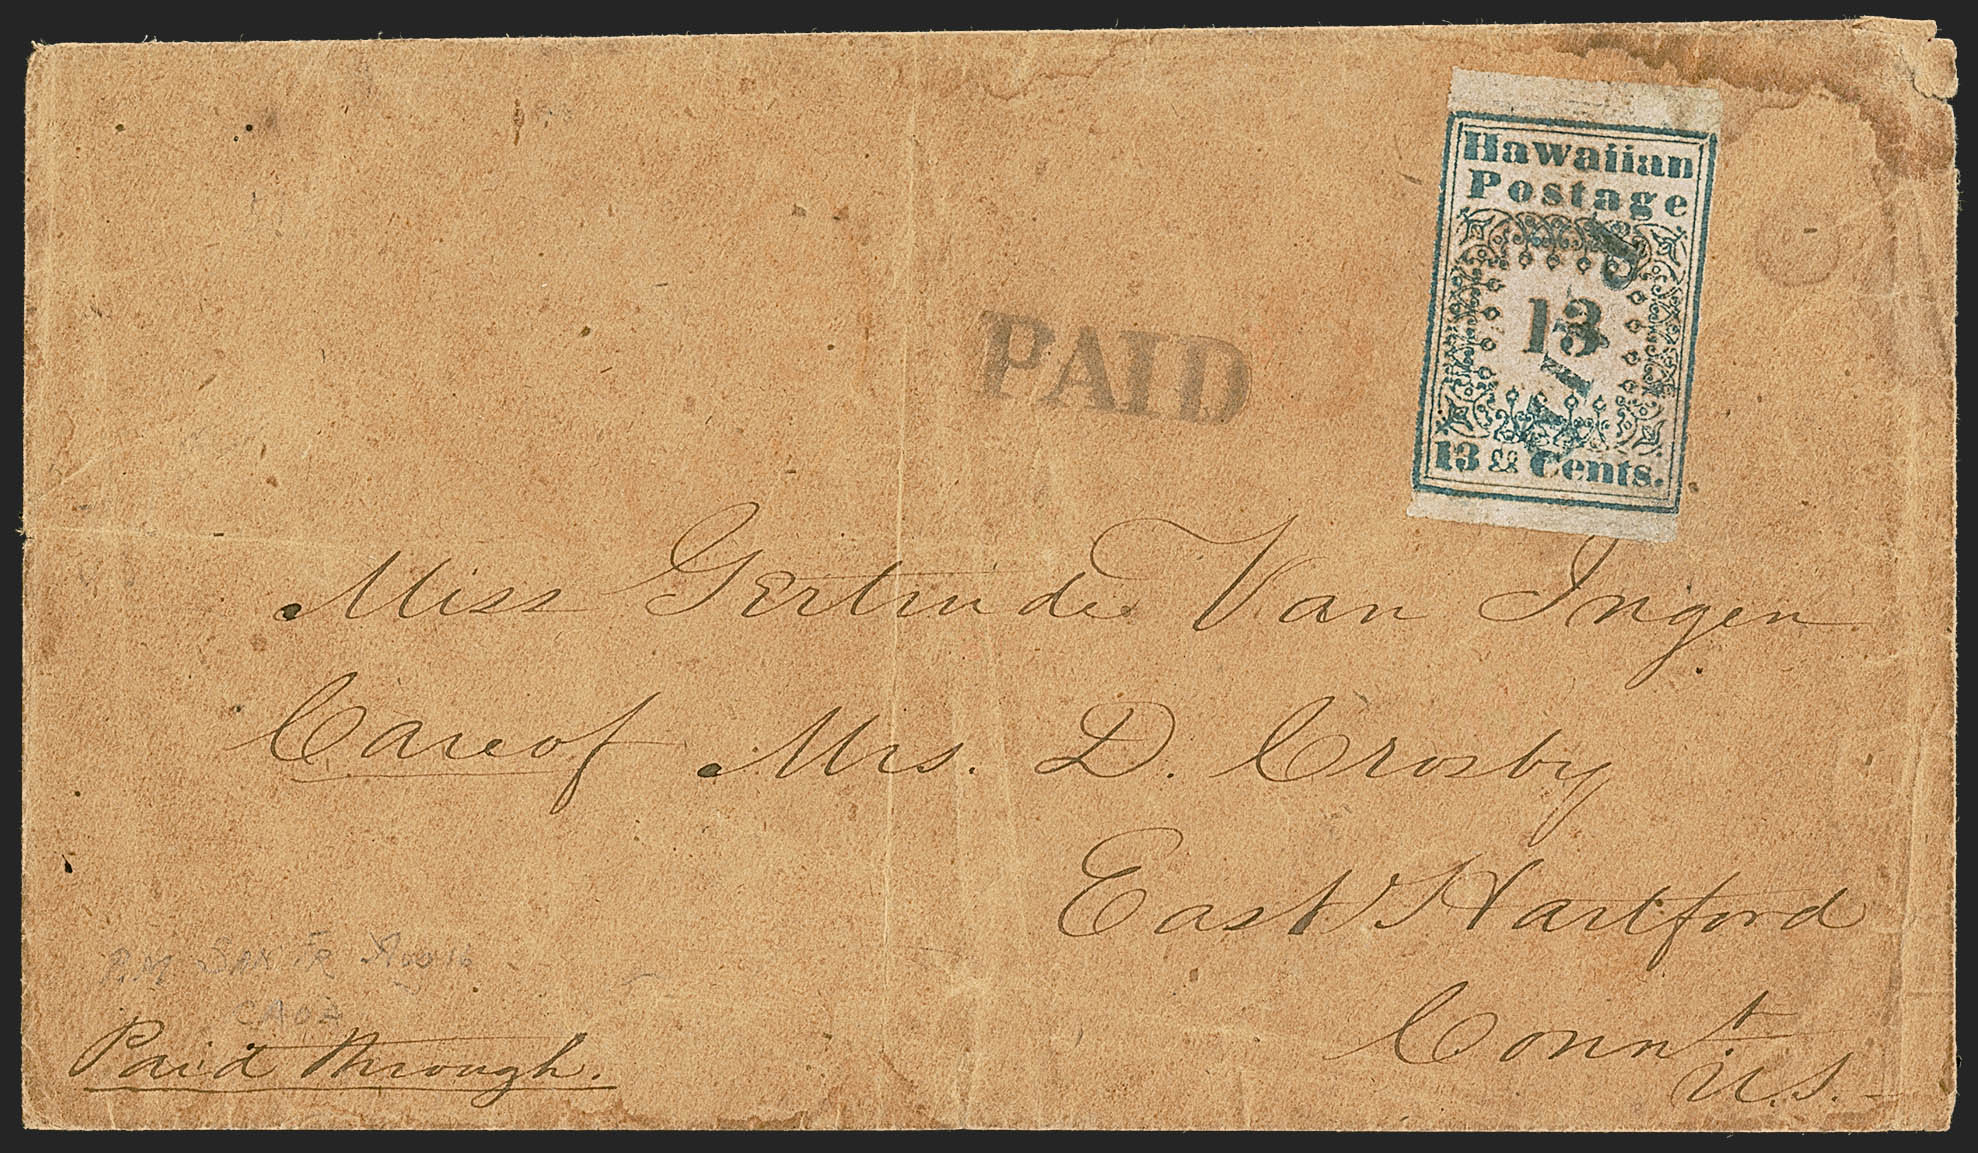 Hawaiian
Postage
13
13 Cents.
PAID
Miss Gertrude Van Ingen
Care of Mrs. D. Crosby
East Hartford
Connt.
U.S.
Paid Through.